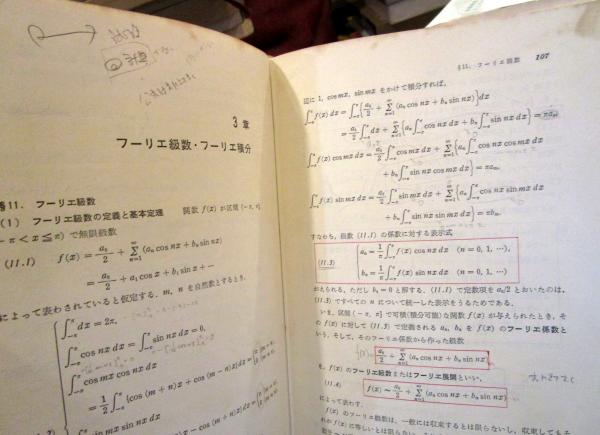 3 章
フーリエ級数・フーリエ積分
§11. フーリエ級数
(1) フーリエ級数の定義と基本定理 関数 f(x) が区間 (-π, π]
(-π<x≦π) で無限級数
(11.1) f(x) = a₀/2 + ∑_{n=1}^{∞} (aₙ cos nx + bₙ sin nx)
= a₀/2 + a₁ cos x + b₁ sin x + ⋯
によって表わされていると仮定する. m, n を自然数とするとき,
∫_{-π}^{π} dx = 2π,
∫_{-π}^{π} cos nx dx = ∫_{-π}^{π} sin nx dx = 0,
∫_{-π}^{π} cos mx cos nx dx
= 1/2 ∫_{-π}^{π} {cos (m+n)x + cos (m-n)x} dx =
∫_{-π}^{π} sin mx sin nx dx
§11. フーリエ級数 107
辺に 1, cos mx, sin mx をかけて積分すれば,
∫_{-π}^{π} f(x) dx = ∫_{-π}^{π} {a₀/2 + ∑_{n=1}^{∞} (aₙ cos nx + bₙ sin nx)} dx
= a₀/2 ∫_{-π}^{π} dx + ∑_{n=1}^{∞} {aₙ ∫_{-π}^{π} cos nx dx + bₙ ∫_{-π}^{π} sin nx dx} = πa₀,
∫_{-π}^{π} f(x) cos mx dx = a₀/2 ∫_{-π}^{π} cos mx dx + ∑_{n=1}^{∞} {aₙ ∫_{-π}^{π} cos nx cos mx dx
+ bₙ ∫_{-π}^{π} sin nx cos mx dx} = πaₘ,
∫_{-π}^{π} f(x) sin mx dx = a₀/2 ∫_{-π}^{π} sin mx dx + ∑_{n=1}^{∞} {aₙ ∫_{-π}^{π} cos nx sin mx dx
+ bₙ ∫_{-π}^{π} sin nx sin mx dx} = πbₘ.
すなわち, 級数 (11.1) の係数に対する表示式
aₙ = 1/π ∫_{-π}^{π} f(x) cos nx dx (n=0, 1, ⋯),
(11.3)
bₙ = 1/π ∫_{-π}^{π} f(x) sin nx dx (n=0, 1, ⋯)
がえられる. ただし b₀=0 と解する. (11.1) で定数項を a₀/2 とおいたのは,
(11.3) ですべての n について統一した表示をうるためである.
いま, 区間 (-π, π] で可積(積分可能)な関数 f(x) が与えられたとき, そ
の f(x) に対して (11.3) で定義される aₙ, bₙ を f(x) のフーリエ係数と
いう. そして, そのフーリエ係数から作った級数
a₀/2 + ∑_{n=1}^{∞} (aₙ cos nx + bₙ sin nx)
を, f(x) のフーリエ級数またはフーリエ展開といい,
(11.4) f(x) ∼ a₀/2 + ∑_{n=1}^{∞} (aₙ cos nx + bₙ sin nx)
によって表わす.
f(x) のフーリエ級数は, 一般には収束するとは限らないし, 収束してもそ